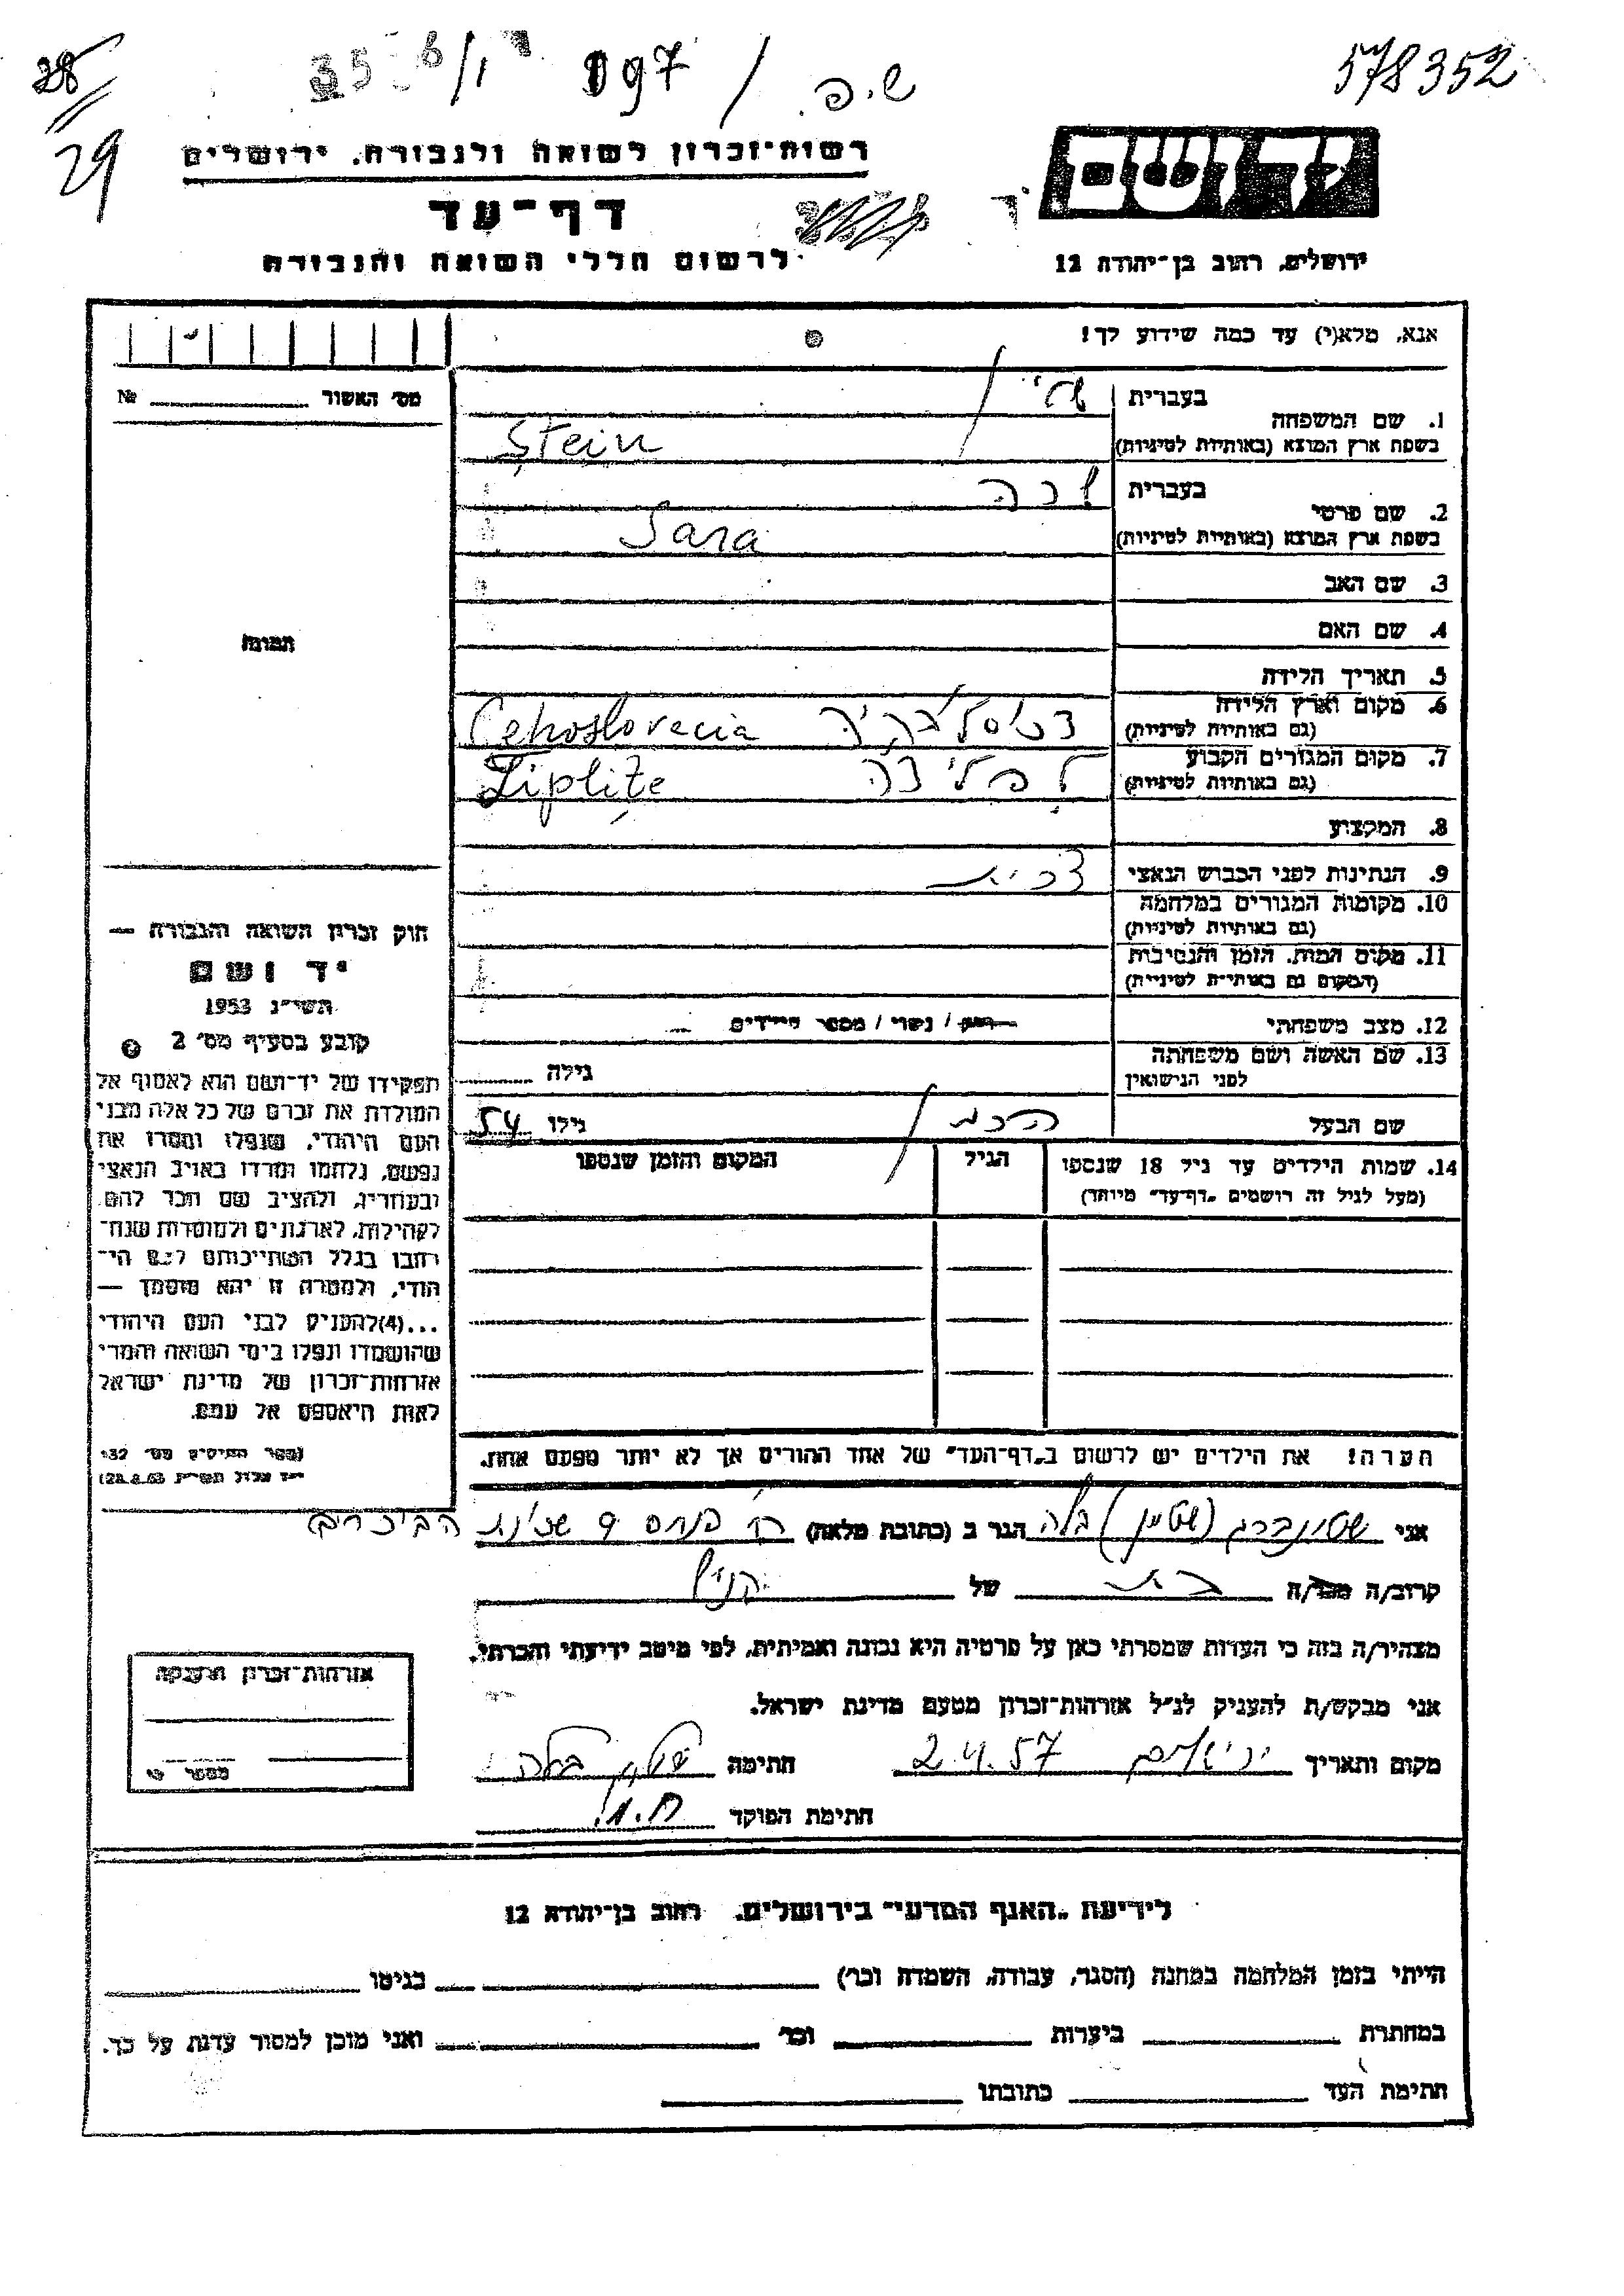 28
29
35 6/1 197 / ש.פ
578352
יד ושם
רשות-זכרון לשואה ולגבורה, ירושלים
דף-עד
לרשום חללי השואה והגבורה
ירושלים, רחוב בן-יהודה 12
אנא, מלא(י) עד כמה שידוע לך!
מס׳ האשור № 
1. שם המשפחה
בעברית
בשפת ארץ המוצא (באותיות לטיניות) Ştein
2. שם פרטי
בעברית שרה
בשפת ארץ המוצא (באותיות לטיניות) Sara
3. שם האב
4. שם האם
5. תאריך הלידה
6. מקום וארץ הלידה
(גם באותיות לטיניות) Cehoslovacia
7. מקום המגורים הקבוע
(גם באותיות לטיניות) Lipliţe
8. המקצוע
9. הנתינות לפני הכבוש הנאצי
10. מקומות המגורים במלחמה
(גם באותיות לטיניות)
11. מקום המות, הזמן והנסיבות
(המקום גם באותיות לטיניות)
12. מצב משפחתי רווק / נשוי / מספר הילדים
13. שם האשה ושם משפחתה
לפני הנישואין גילה
שם הבעל גילו 54
14. שמות הילדים עד גיל 18 שנספו הגיל המקום והזמן שנספו
(מעל לגיל זה רושמים „דף-עד״ מיוחד)
הערה! את הילדים יש לרשום ב„דף-העד״ של אחד ההורים אך לא יותר מפעם אחת.
תמונה
חוק זכרון השואה והגבורה —
יד ושם
תשי״ג 1953
קובע בסעיף מס׳ 2
תפקידו של יד-ושם הוא לאסוף אל
המולדת את זכרם של כל אלה מבני
העם היהודי, שנפלו ומסרו את
נפשם, נלחמו ומרדו באויב הנאצי
ובעוזריו, ולהציב שם וזכר להם
לקהילות, לארגונים ולמוסדות שנח-
רבו בגלל השתייכותם לעם הי-
הודי, ולמטרה זו יהא מוסמך —
...(4)להעניק לבני העם היהודי
שהושמדו ונפלו בימי השואה והמרי
אזרחות-זכרון של מדינת ישראל
לאות היאספם אל עמם.
(ספר החוקים מס׳ 132
28.8.53)
אני שטינברג (שטיין) בלה הגר ב (כתובת מלאה) שכונת
קרוב/ה מכר/ה בת של
מצהיר/ה בזה כי העדות שמסרתי כאן על פרטיה היא נכונה ואמיתית, לפי מיטב ידיעתי והכרתי.
אני מבקש/ת להעניק לנ״ל אזרחות-זכרון מטעם מדינת ישראל.
מקום ותאריך 2.4.57 חתימה
חתימת הפוקד
אזרחות-זכרון הוענקה
מספר
לידיעת „האגף המדעי״ בירושלים, רחוב בן-יהודה 12
הייתי בזמן המלחמה במחנה (הסגר, עבודה, השמדה וכו׳) בגיטו
במחתרת ביערות וכו׳ ואני מוכן למסור עדות על כך.
חתימת העד כתובתו